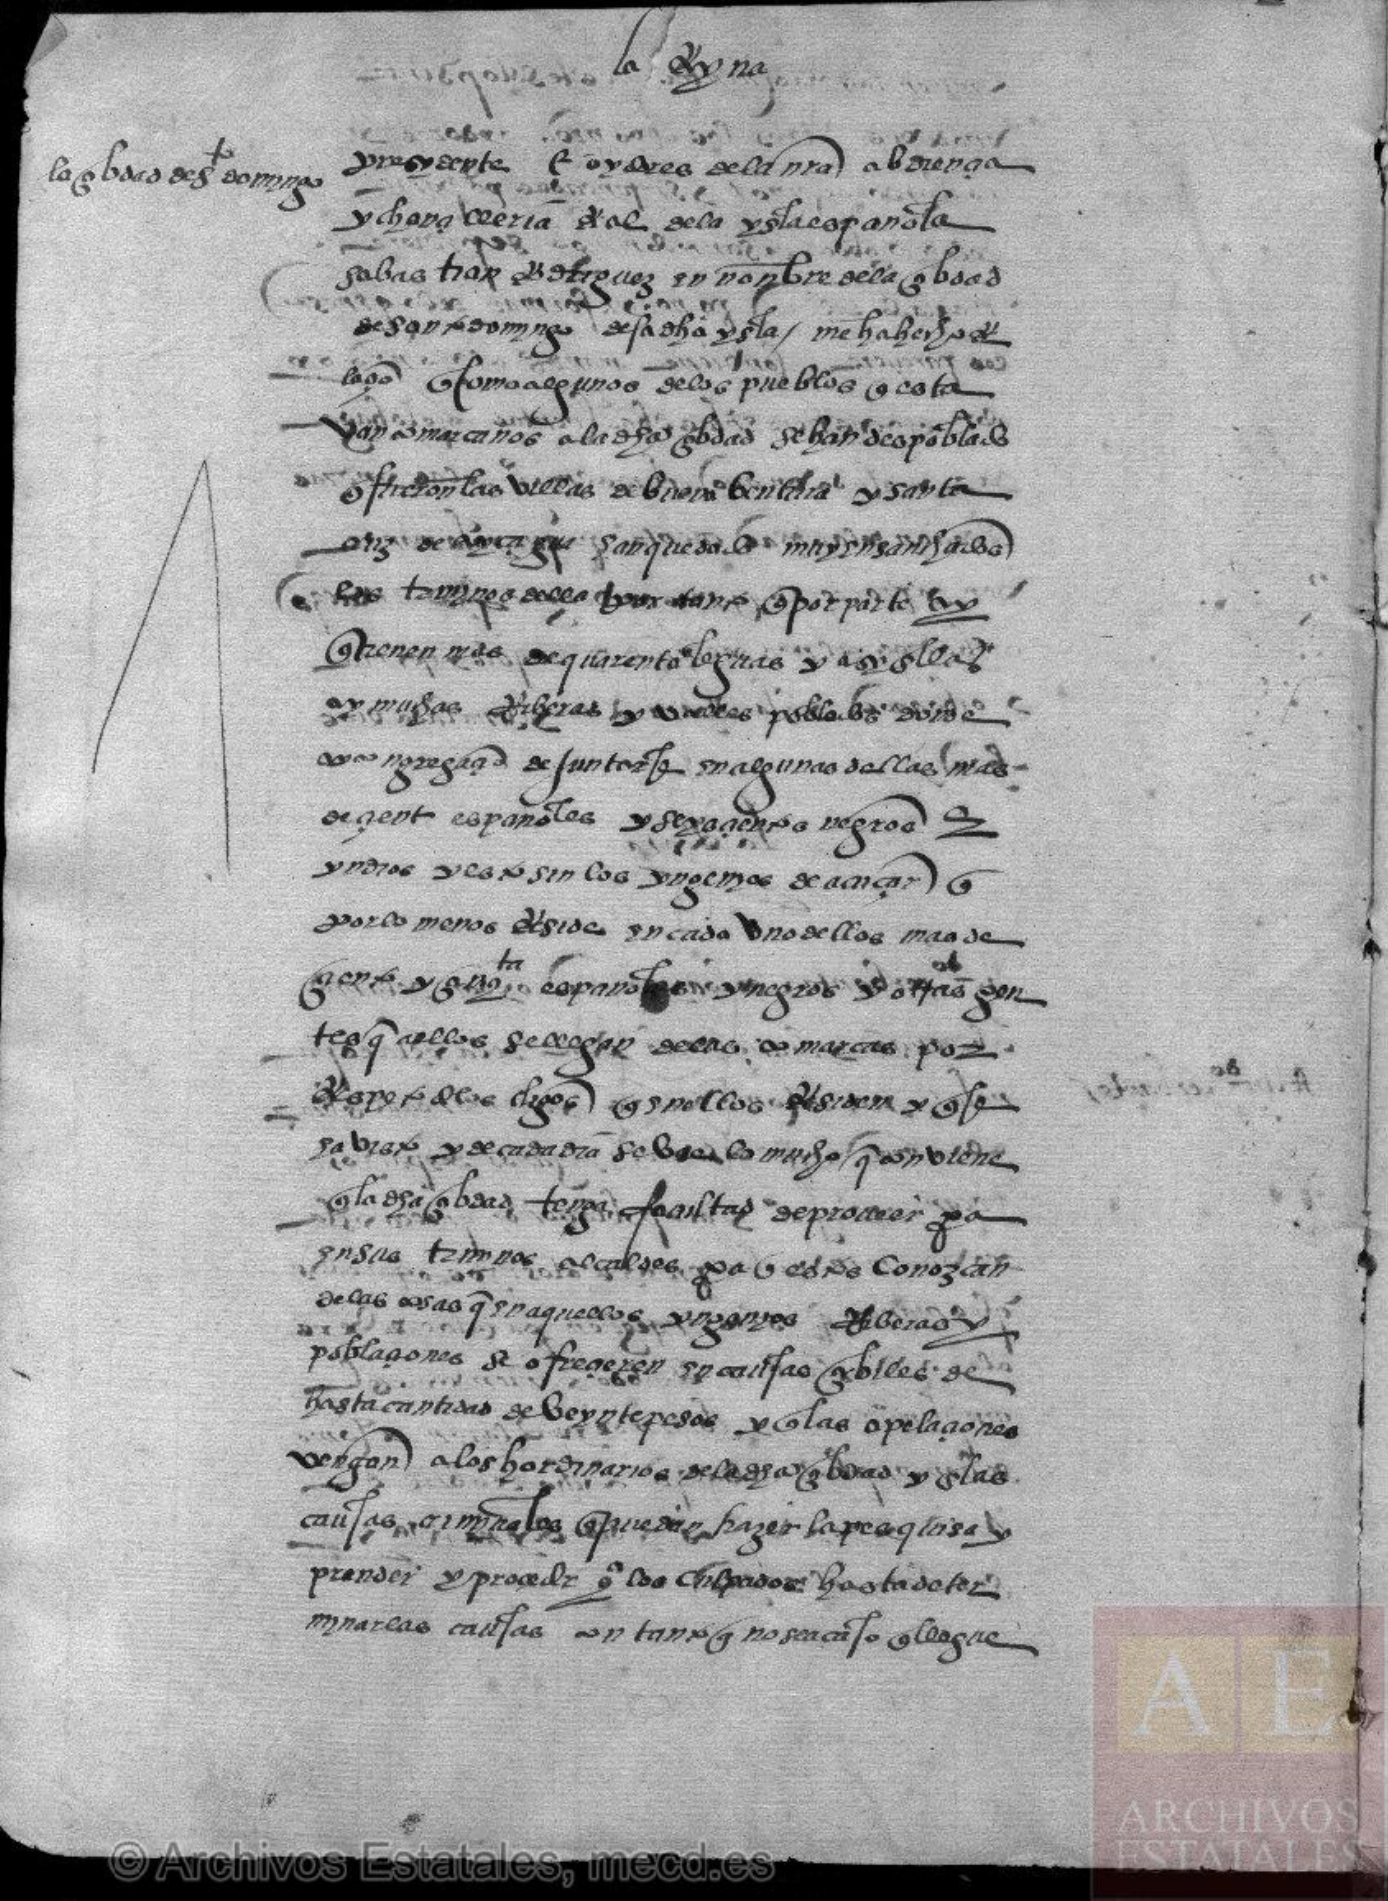 la Reyna
la çbdad de Sto domingo
presydente e oydores de la nra abdiençia
y chançilleria Real de la ysla española
sebastian Rodriguez en nonbre de la çbdad
de santo domingo desa dha ysla / me ha hecho Re
laçion q como algunos de los pueblos q esta
van comarcanos a la dha çbdad se han despoblado
q fueron las villas de buena bentura y santa
cruz de han quedado muy ensanchados
los terminos della por tanto q por parte ay
q tienen mas de quarenta leguas y q en ellas
ay muchas Riberas y valles poblados donde
congregaçion de juntarse en algunas dellas mas
de çient españoles y seysçientos negros e
yndios y esto sin los yngenios de açucar q
por lo menos Reside en cada uno dellos mas de
çiento y çinqta españoles y negros y otras gen
tes q a ellos se llegan de las comarcas por
Respeto de los clerigos q en ellos Residen y q se
ha visto y de cada dia se vee lo mucho q conviene
q la dha çbdad tenga facultad de proveer pa
en sus terminos alcaldes pa q estos conozcan
de las cosas q en aquellos yngenios Riberas y
poblaçiones se ofreçeren en causas çibiles de
hasta cantidad de veynte pesos y q las apelaçiones
vengan a los hordinarios de la dha çbdad y q las
causas criminales q puedan hazer la pesquisa y
prender y proceder cº los culpados hasta deter
minar las causas con tanto q no sea caso q llegue
© Archivos Estatales, mecd.es
AE
ARCHIVOS
ESTATALES